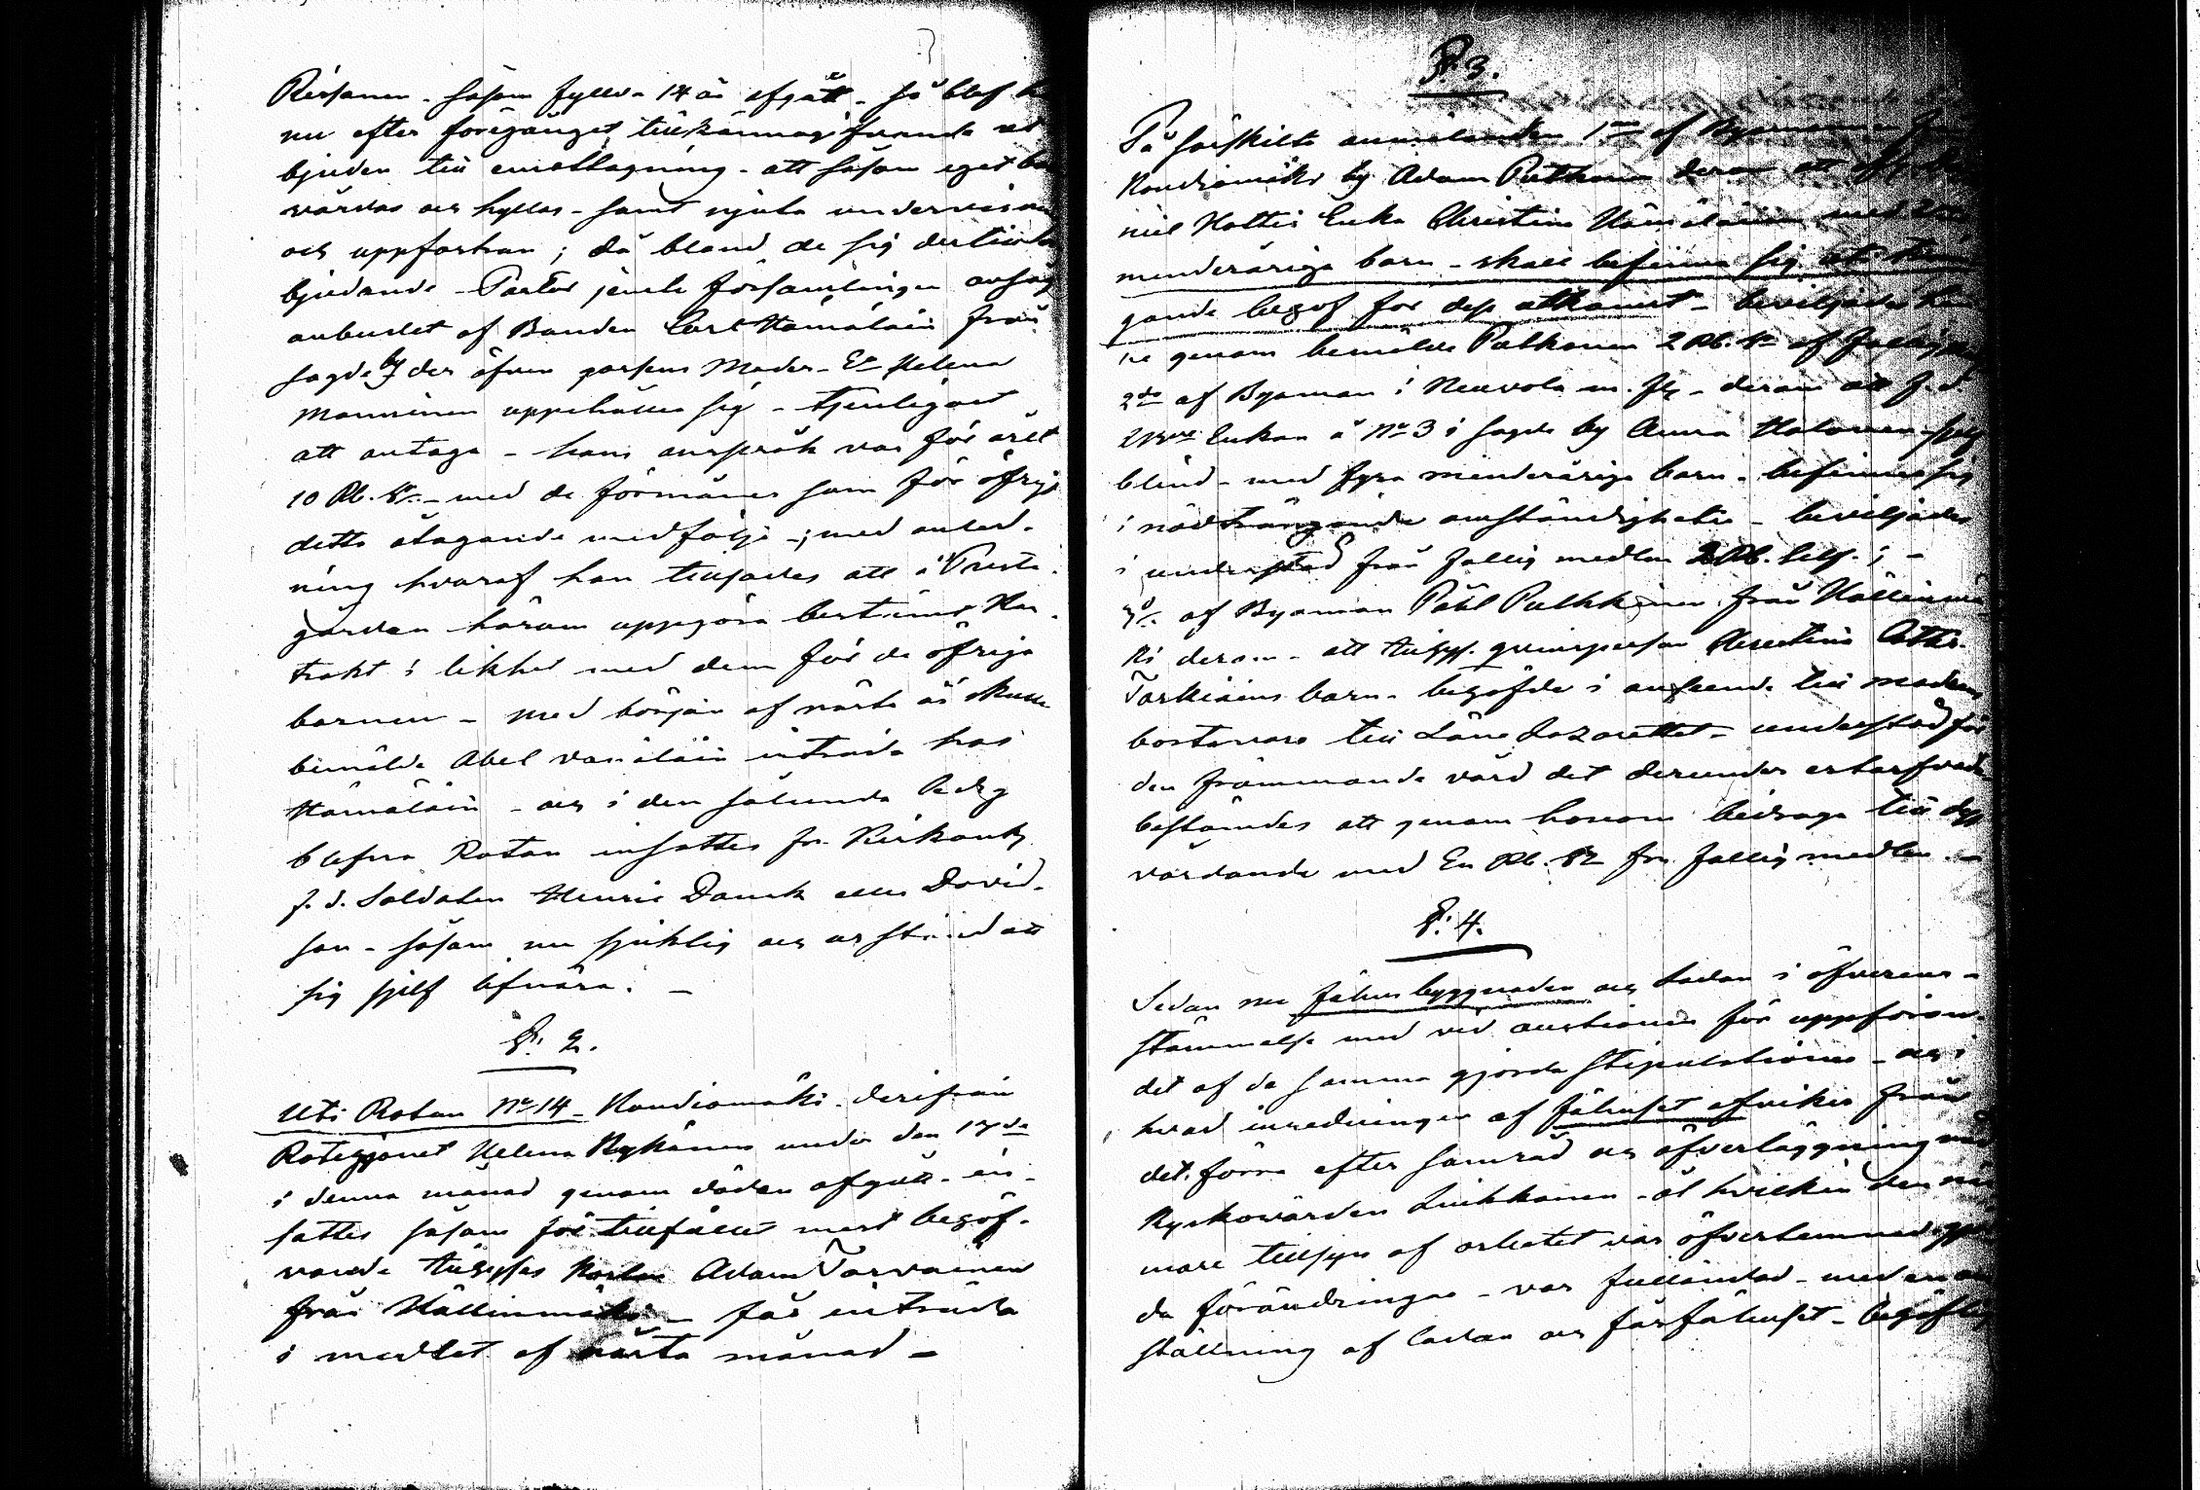 såsom fyllda 14 år afgått - så blef
nu efter föregånget tillkännagifvande ut
bjuden till emottagning - att såsom eget
vårdas och hyllas - samt njuta undervisn
och uppfostran; då bland de sig dertill
bjudande - Pastor jemte församlingen ansåg
anbudet af Bonden Carl Hämäläin från
sagde by der äfven gossens Moder - Ea Helena
Manninen uppehåller sig - tjenligast
att antaga - hans anspråk var för året
10 Rb. Sr. - med de förmåner som för öfrigt
detta åtagande medfölja -; med anled-
ning hvaraf han tillsades att i Prest-
gården härom uppgöra bestämdt Kon-
trakt i likhet med dem för de öfriga
barnen - med början af nästa år skulle
bemälde Abel inträda hos
Hämäläin - och i den sålunda ledig
blefna Rotan insattes fr.
f. d. Soldaten Henric Dansk eller David-
son - såsom nu sjuklig och urstånd att
sig sjelf lifnära. -
§. 2.
Uti Rotan No 14 - Kondiomäki - derifrån
Rotehjonet Helena Rykänen under den 17de
i denna månad genom döden afgått - in-
sattes såsom för tillfället mest behöf-
vande Adam Tarvainen
från Källinmäki - får inträda
i medlet af nästa månad -
§. 3.
På särskilte anmälanden 1mo af Byamannen
Kondiomäki by Adam Putkonen derom att
Enka Christina Hämäläinen med
minderåriga barn - skall befinna sig
gande behof för dess utkomst - beviljades
genom bemälde Putkonen 2 Rb. Sr af
2do af Byaman i Neuvola - derom att f. d.
Enkan å No 3 i sagde by Anna Halonen
blind - med fyra minderåriga barn - befinner sig
i nödträngande omständigheter - beviljades
i understöd från fattig medlen 2 Rb. Silf. ; -
3o. af Byaman Påhl Pulkkinen från Källinmä
ki derom - att qvinsperson Christina
Tarkiains barn - behöfde i anseende till modrens
bortavaro till Läns Lazarettet - understöd för
den främmande vård det derunder erfordrade
bestämdes att genom honom bidraga till dess
vårdande med En Rb. Sr fr. fattig medlen. -
§. 4.
Sedan nu fähus byggnaden och Ladan i öfverens-
stämmelse med vid auctionen för uppföran
det af de samma gjorda stipulationer - och i
hvad inredningen af fähuset afviker från
det förra efter samråd och öfverläggning med
Kyrkovärden Liukkonen - åt hvilken den när
mare tillsyn af arbetet var öfverlemnad
da förändringar - var fulländad - med en
ställning af ladan och fårfähuset -